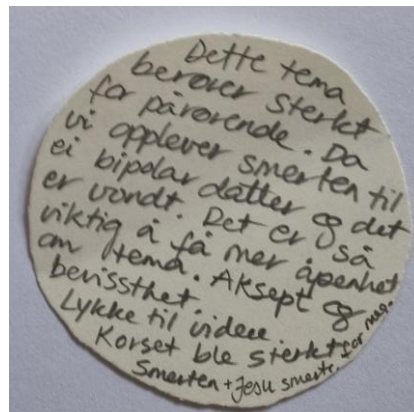 Dette tema
berører sterkt
for pårørende. Da
vi opplever smerten til
ei bipolar datter og det
er vondt. Det er så
viktig å få mer åpenhet
om tema. Aksept og
bevissthet.
Lykke til videre.
Korset ble sterkt for meg.
Smerten + Jesu smerte.